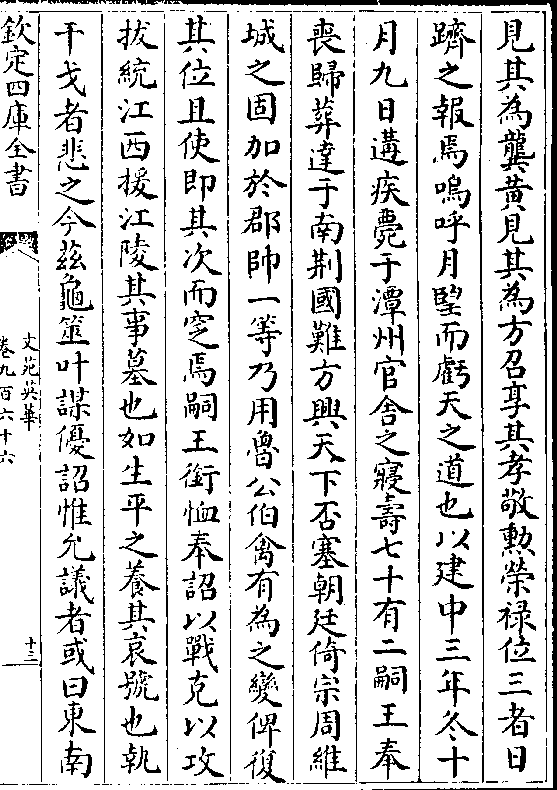 見其為龔黄見其為方召享其孝敬勲榮禄位三者日
躋之報焉嗚呼月望而虧天之道也以建中三年冬十
月九日遘疾薨于潭州官舍之寢壽七十有二嗣王奉
喪歸葬達于南荆國難方興天下否塞朝廷倚宗周維
城之固加於郡帥一等乃用魯公伯禽有為之變俾復
其位且使即其次而窆焉嗣王銜恤奉詔以戰克以攻
拔統江西援江陵其事墓也如生平之養其哀號也執
干戈者悲之今兹龜筮叶謀優詔惟允議者或曰東南
欽定四庫全書
文苑英華
卷九百六十六
十三